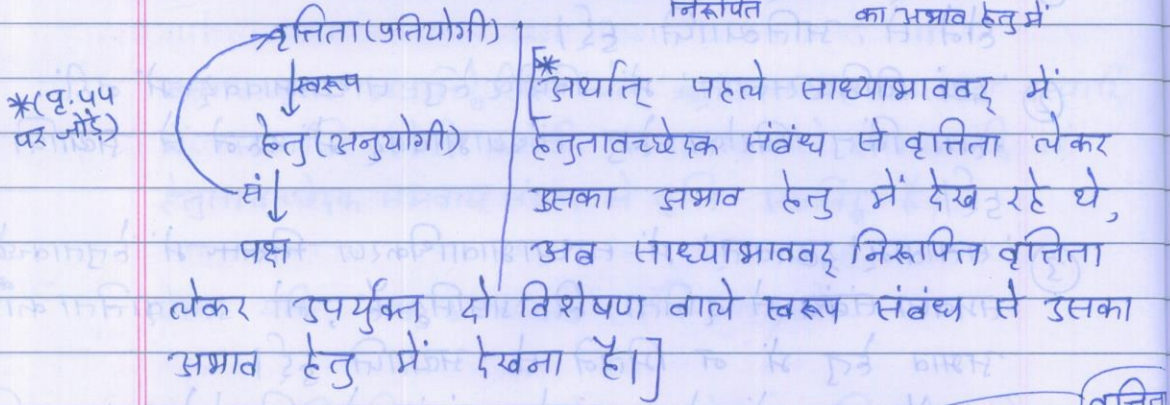 निरूपित का अभाव हेतु में
वृत्तिता (प्रतियोगी)
↓ स्वरूप
हेतु (अनुयोगी)
में ↓
पक्ष
*(पृ. ५५
पर जोड़ें)
[* अर्थात् पहले साध्याभाववद् में
हेतुतावच्छेदक संबंध से वृत्तिता लेकर
उसका अभाव हेतु में देख रहे थे,
अब साध्याभाववद् निरूपित वृत्तिता
लेकर उपर्युक्त दो विशेषण वाले स्वरूप संबंध से उसका
अभाव हेतु में देखना है।]